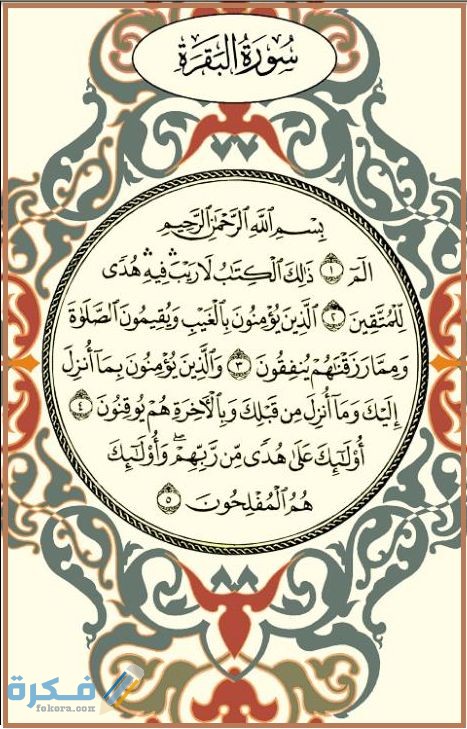 سُورَةُ البَقَرَةِ
بِسْمِ اللَّهِ الرَّحْمَٰنِ الرَّحِيمِ
الٓمٓ ١ ذَٰلِكَ الْكِتَٰبُ لَا رَيْبَ ۛ فِيهِ ۛ هُدًى
لِّلْمُتَّقِينَ ٢ الَّذِينَ يُؤْمِنُونَ بِالْغَيْبِ وَيُقِيمُونَ الصَّلَوٰةَ
وَمِمَّا رَزَقْنَٰهُمْ يُنفِقُونَ ٣ وَالَّذِينَ يُؤْمِنُونَ بِمَا أُنزِلَ
إِلَيْكَ وَمَا أُنزِلَ مِن قَبْلِكَ وَبِالْآخِرَةِ هُمْ يُوقِنُونَ ٤
أُولَٰئِكَ عَلَىٰ هُدًى مِّن رَّبِّهِمْ ۖ وَأُولَٰئِكَ
هُمُ الْمُفْلِحُونَ ٥
فكرة
fokora.com